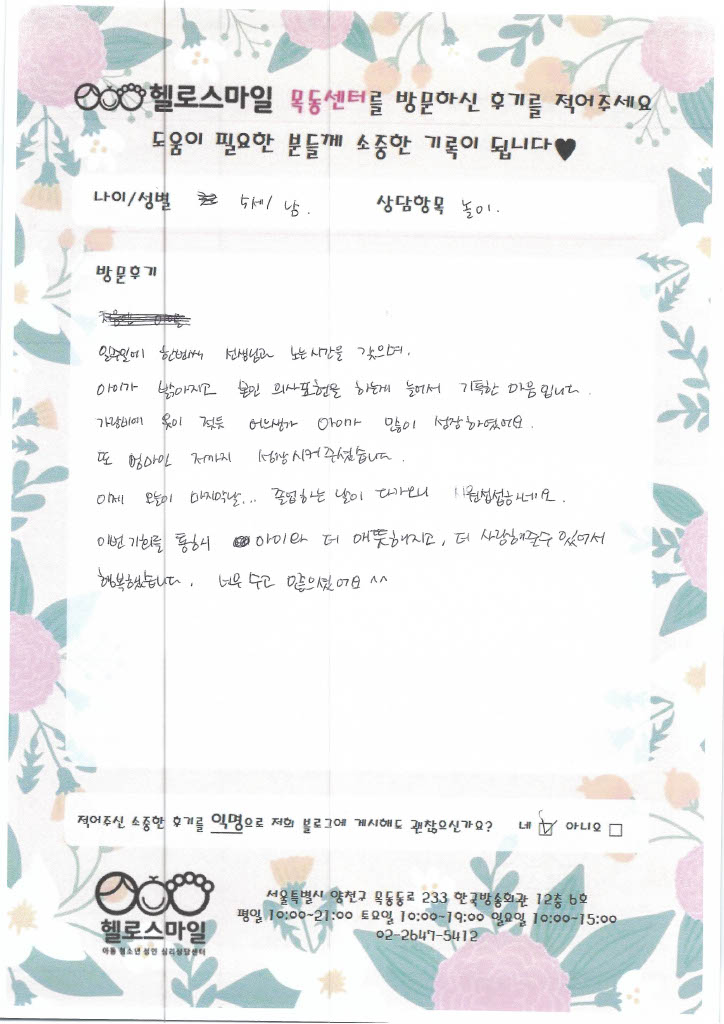 헬로스마일 목동센터를 방문하신 후기를 적어주세요
도움이 필요한 분들께 소중한 기록이 됩니다♥
나이/성별 5세/ 남. 상담항목 놀이.
방문후기
일주일에 한번씩 선생님과 노는시간을 갖으며.
아이가 밝아지고 본인 의사표현을 하는게 늘어서 기특한 마음입니다.
가랑비에 옷이 젖듯 어느샌가 아이가 많이 성장하였어요.
또 엄마인 저까지 성장시켜 주셨습니다.
이제 오늘이 마지막날... 졸업하는 날이 다가오니 시원섭섭하네요.
이번 기회를 통해서 아이와 더 애뜻해지고, 더 사랑해줄수 있어서
행복했습니다. 너무 수고 많으셨어요 ^^
적어주신 소중한 후기를 익명으로 저희 블로그에 게시해도 괜찮으신가요? 네 ☑ 아니오 □
헬로스마일
아동 청소년 성인 심리상담센터
서울특별시 양천구 목동동로 233 한국방송회관 12층 6호
평일 10:00~21:00 토요일 10:00~19:00 일요일 10:00~15:00
02-2647-5412